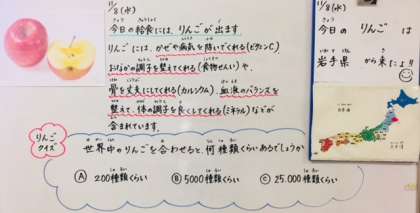 11/8(水)
今日の給食には、りんごが出ます
りんごには、かぜや病気を防いでくれる(ビタミンC)
おなかの調子を整えてくれる(食物せんい)や、
骨を丈夫にしてくれる(カルシウム)血液のバランスを
整えて、体の調子を良くしてくれる(ミネラル)などが
含まれています。
りんご
クイズ
世界中のりんごを合わせると、何種類くらいあるでしょうか
Ⓐ 200種類くらい Ⓑ 5000種類くらい Ⓒ 25.000種類くらい
11/8(水)
今日の りんご は
岩手県 から来たよ!!